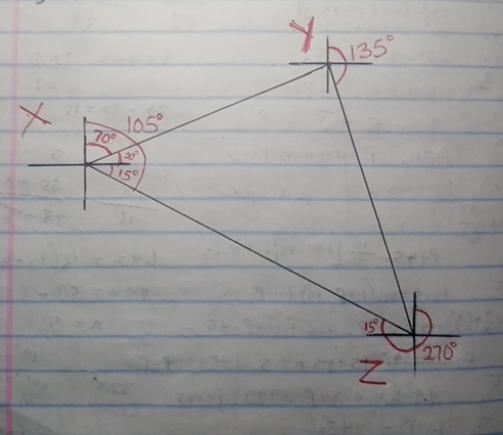 Y
135°
X
105°
70°
20°
15°
15°
270°
Z